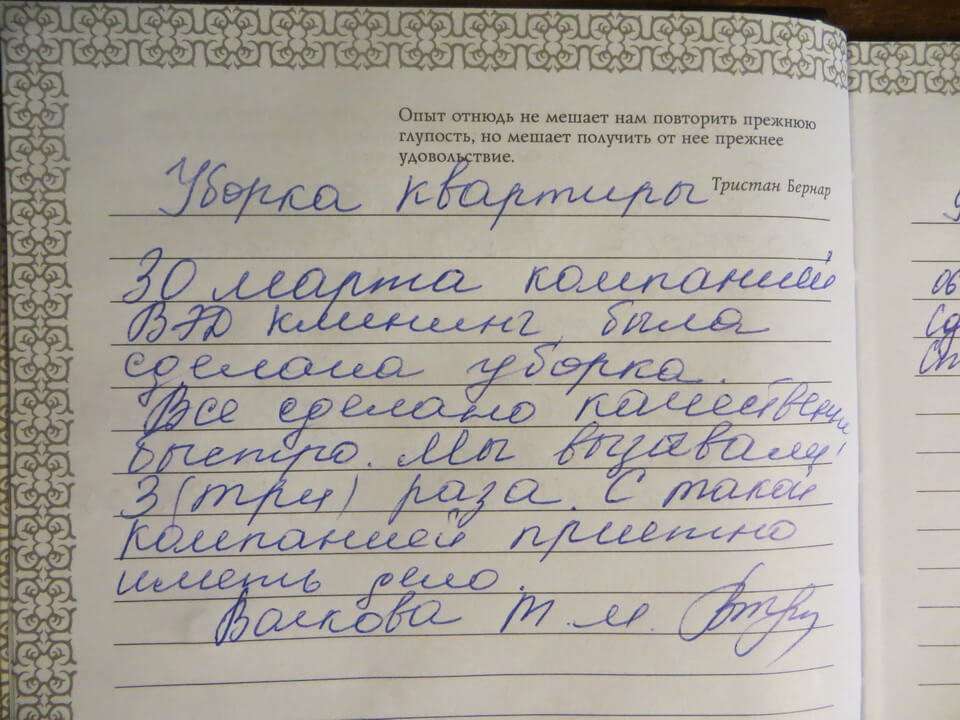 Опыт отнюдь не мешает нам повторить прежнюю
глупость, но мешает получить от нее прежнее
удовольствие.
Тристан Бернар
Уборка квартиры
30 марта компанией
ВЭД клининг была
сделана уборка.
Все сделано качественно,
быстро. Мы вызывали
3 (три) раза. С такой
компанией приятно
иметь дело.
Волкова Т.М.